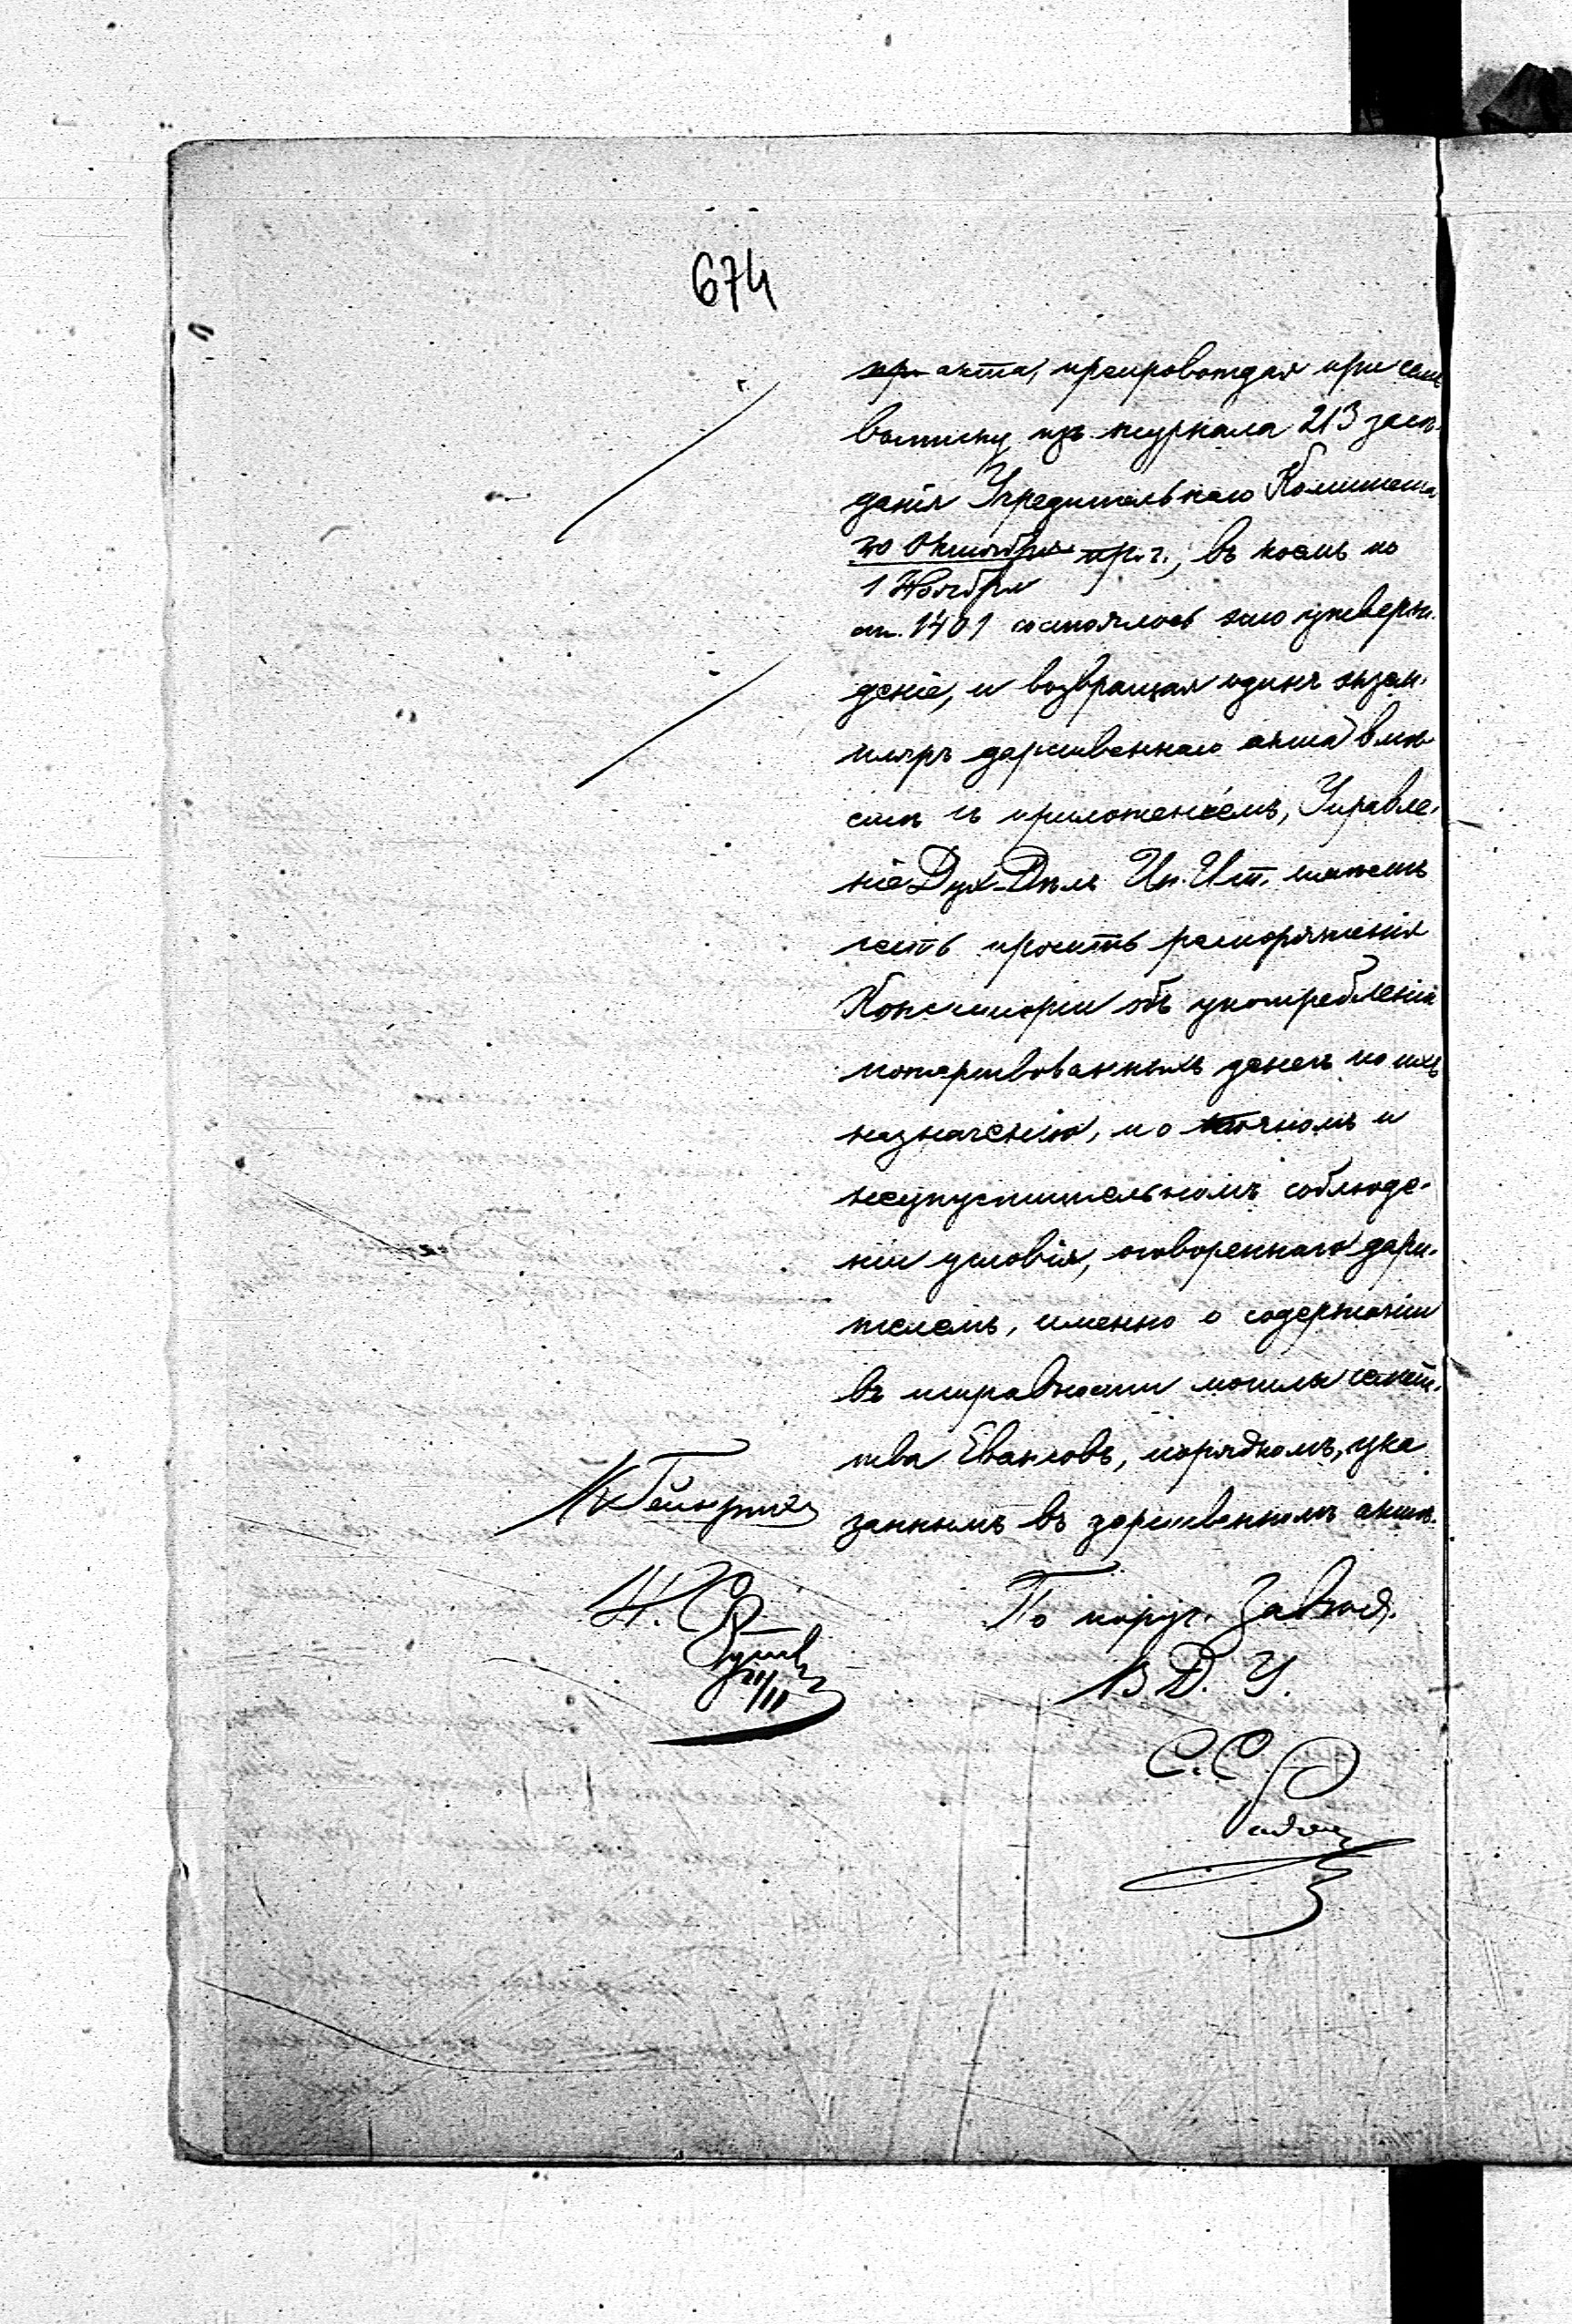 674
пр акта, препровождая при семъ
выписку изъ журнала 213 засѣ-
данія Учредительнаго Комитета
20 Октября пр. г., въ коемъ по
1 Ноября
ст. 1401 состоялось это утверж-
деніе, и возвращая одинъ экзем-
пляръ дарственнаго акта вмѣ-
стѣ съ приложеніемъ, Управле-
ніе Дух. Дѣлъ Ин. Исп. имѣетъ
честь просить распоряженія
Консисторіи объ употребленіи
пожертвованныхъ денегъ по ихъ
назначенію, и о точномъ и
неупустительномъ соблюде-
ніи условія, оговореннаго дари-
телемъ, именно о содержаніи
въ исправности могилы семей-
тва Евансовъ, порядкомъ, ука
заннымъ въ дарственномъ актѣ.
По поруч. Завѣд.
В. Д. У.
С. С.